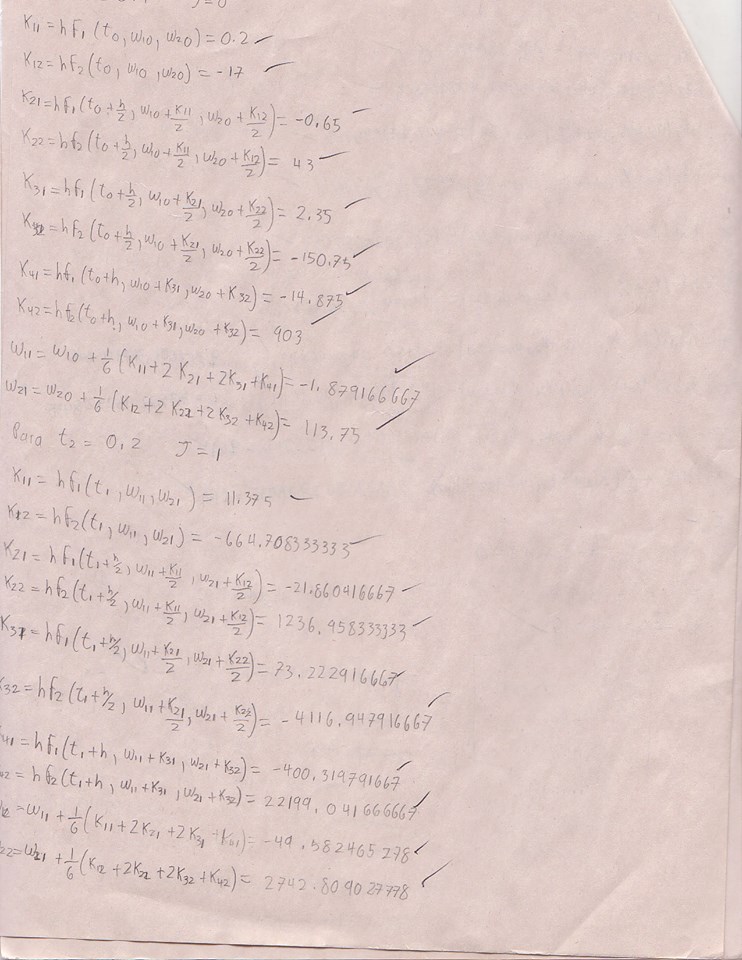 J=0
K11=hf1(t0,w10,w20)=0.2 ✓
K12=hf2(t0,w10,w20)=-17 ✓
K21=hf1(t0+h/2,w10+K11/2,w20+K12/2)=-0.65 ✓
K22=hf2(t0+h/2,w10+K11/2,w20+K12/2)=43 ✓
K31=hf1(t0+h/2,w10+K21/2,w20+K22/2)=2.35 ✓
K32=hf2(t0+h/2,w10+K21/2,w20+K22/2)=-150.75 ✓
K41=hf1(t0+h,w10+K31,w20+K32)=-14.875 ✓
K42=hf2(t0+h,w10+K31,w20+K32)=903 ✓
w11=w10+1/6(K11+2K21+2K31+K41)=-1.879166667 ✓
w21=w20+1/6(K12+2K22+2K32+K42)=113.75 ✓
Para t2=0.2 J=1
K11=hf1(t1,w11,w21)=11.375 ✓
K12=hf2(t1,w11,w21)=-664.708333333 ✓
K21=hf1(t1+h/2,w11+K11/2,w21+K12/2)=-21.860416667 ✓
K22=hf2(t1+h/2,w11+K11/2,w21+K12/2)=1236.958333333 ✓
K31=hf1(t1+h/2,w11+K21/2,w21+K22/2)=73.222916667 ✓
K32=hf2(t1+h/2,w11+K21/2,w21+K22/2)=-4116.947916667 ✓
41=hf1(t1+h,w11+K31,w21+K32)=-400.319791667 ✓
42=hf2(t1+h,w11+K31,w21+K32)=22199.041666667 ✓
12=w11+1/6(K11+2K21+2K31+K41)=-49.582465278 ✓
22=w21+1/6(K12+2K22+2K32+K42)=2742.809027778 ✓